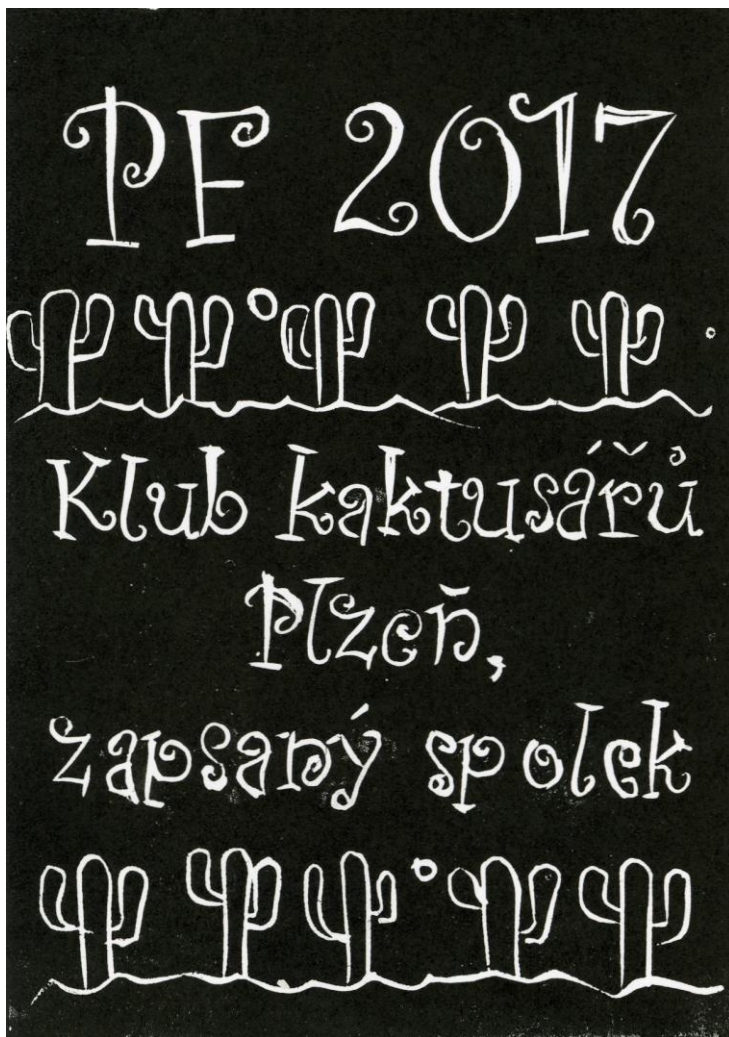 PF 2017
Klub kaktusářů
Plzeň,
zapsaný spolek